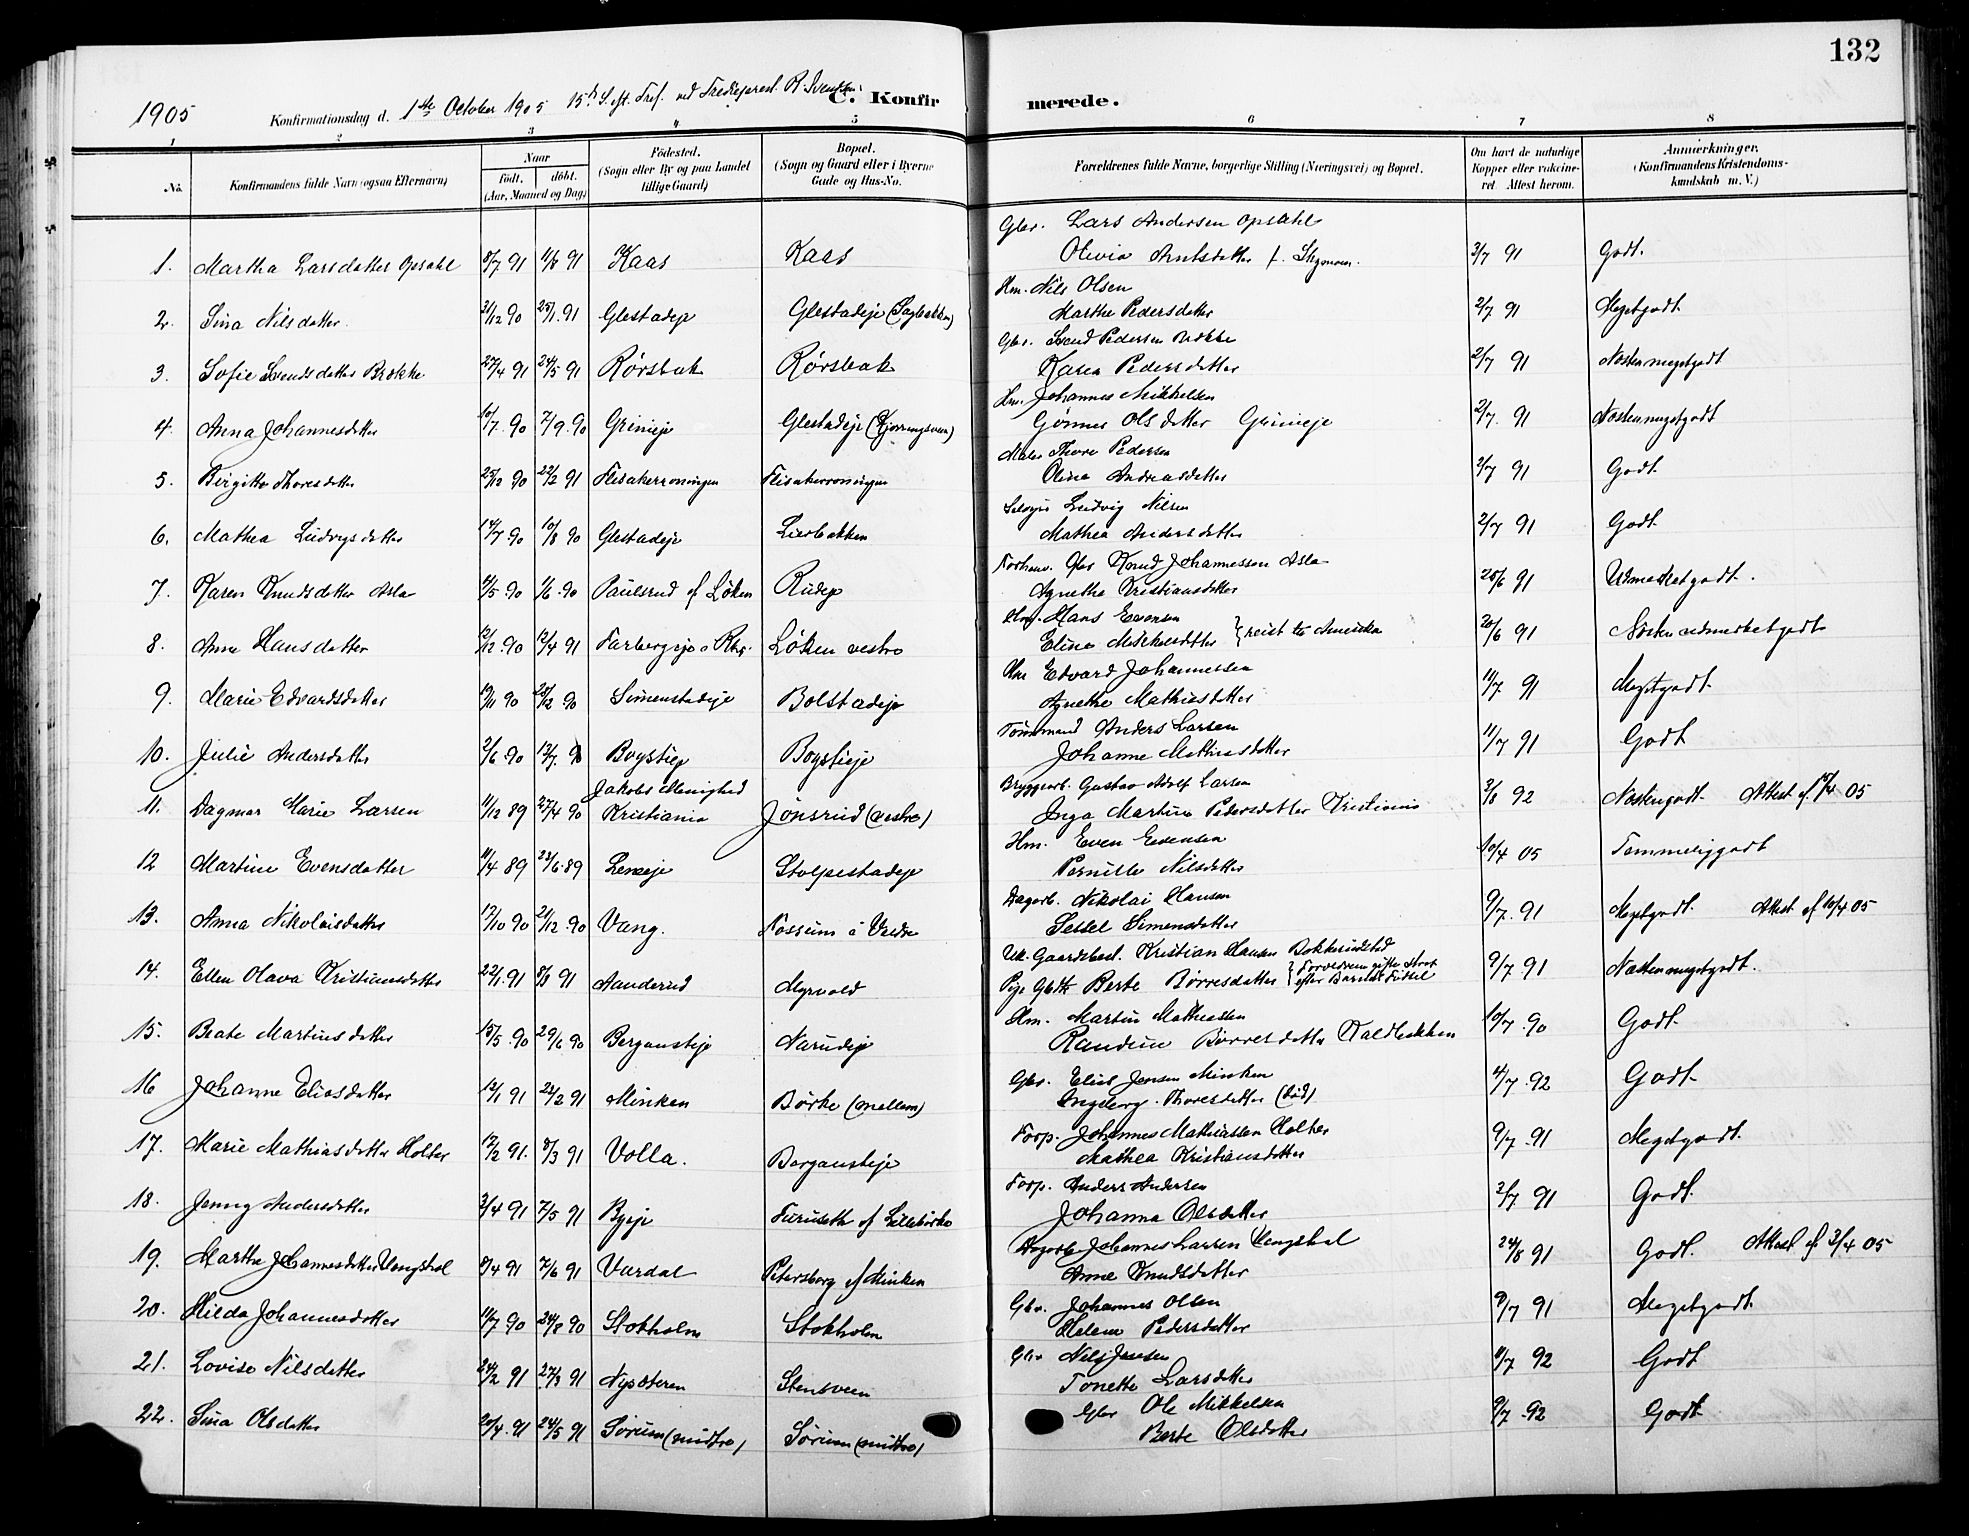 132
1905 Konfirmationsdag d. 1ste October 1905 15de S. eft. Tref. ved C. Konfirmerede.
1 2 3 4 5 6 7 8
No. Konfirmandens fulde Navn (ogsaa Efternavn) Naar født. døbt. (Aar, Maaned og Dag) Fødested. (Sogn eller By og paa Landet tillige Gaard) Bopæl. (Sogn og Gaard eller i Byerne Gade og Hus-No. Forældrenes fulde Navne, borgerlige Stilling (Næringsvei) og Bopæl. Om havt de naturlige Kopper eller vaccineret. Attest herom. Anmærkninger. (Konfirmandens Kristendomskundskab m. V.)
Gbr. Lars Andersen Opsahl
1. Martha Larsdatter Opsahl 8/7 91 11/8 91 Kaas Kaas Olivia Antsdatter f. 3/7 91 Godt.
Hm. Nils Olsen
2. Sina Nilsdatter 31/12 90 25/1 91 Glestadeje Glestadeje (Sagbakken) Marthe Pedersdatter 2/7 91 Megetgodt
Gbr. Svend Pedersen Brokke
3. Sofie Svendsdatter Brokke 27/4 91 24/5 91 Rørsbak Rørsbak Karen Pedersdatter 2/7 91 Næstenmegetgodt
Hm. Johannes Mikkelsen
4. Anna Johannesdatter 10/7 90 7/9 90 Grinieje Glestadeje Gønner Olsdatter Grinieje 2/7 91 Næstenmegetgodt
Maler Thore Pedersen
5. Birgitte Thoresdatter 25/12 90 22/2 91 Flisakerroningen Flisakerroningen Olina Andreasdatter 2/7 91 Godt
Ludvig Nilsen
6. Mathea Ludvigsdatter 14/7 90 10/8 90 Glestadeje Lierbakken Mathea Andersdatter 2/7 91 Godt
Forhenv. Gbr Knud Johannessen Asla
7. Karen Knudsdatter Asla 4/5 90 1/6 90 Paulsrud af Løken Rudeje Agnethe Kristiansdatter 25/6 91 Udmerketgodt.
Hm. Hans Evensen
8. Anne Hansdatter 12/12 90 12/4 91 Farbergseje Løken vestre Eline Mikkelsdatter } reist til Amerika 20/6 91 Næsten udmerketgodt
Hm Edvard Johannessen
9. Marie Edvardsdatter 19/11 90 28/12 90 Simenstadeje Bolstadeje Agnethe Mathiasdatter 11/7 91 Megetgodt
Tømmermand Anders Larsen
10. Julie Andersdatter 2/6 90 13/7 90 Bøgstieje Bøgstieje Johanne Mathiasdatter 11/7 91 Godt
Jakobs Menighed Bryggeriarb. Gustav Adolf Larsen
11. Dagmar Marie Larsen 11/12 89 27/4 90 Kristiania Jønsrud (vestre) Inga Martine Pedersdatter Kristiania 3/8 92 Næstengodt Attest af 05
Hm. Even Evensen
12 Martine Evensdatter 11/4 89 23/6 89 Leneeje Stolpestadeje Pernille Nilsdatter 10/4 05 Temmeliggodt
Dagarb. Nikolai Hansen
13. Anna Nikolaisdatter 17/10 90 21/12 90 Vang. Fossum i Veldre Sessel Simensdatter 9/7 91 Megetgodt. Attest af 10/4 05
Uk. Gaardbest. Kristian Hansen Bakkerudstad
14. Ellen Olava Kristiansdatter 22/1 91 8/3 91 Aanderud Myrvold Pige Gbdtr Berte Børresdatter } Forældrene gifte strax efter Barnets Fødsel 9/7 91 Næstenmegetgodt.
Hm. Martin Mathiassen
15. Beate Martinsdatter 15/5 90 29/6 90 Berganseje Narudeje Randine Børresdatter Kaldbakken 10/7 90 Godt.
Gbr. Elias Jensen Minken
16 Johanne Eliasdatter 12/1 91 22/2 91 Minken Børke (mellem) Ingeborg Thoresdatter (død) 4/7 92 Godt
Forp. Johannes Mathiassen Holter
17. Marie Mathiasdatter Holter 12/2 91. 8/3 91 Volla. Berganseje Mathea Kristiansdatter 9/7 91 Megetgodt.
Forp. Anders Andersen
18. Jenny Andersdatter 3/4 91 7/5 91 Byeje Furuseth af Lillebørke Johanna Olsdatter 2/7 91 Godt.
Dagarb. Johannes Larsen Vengshol
19. Martha Johannesdatter Vengshol 8/4 91 7/6 91 Vardal Petersborg af Minken Anne Knudsdatter 24/8 91 Godt. Attest af 3/4 05
Gbr. Johannes Olsen
20. Hilda Johannesdatter 11/7 90 24/8 90 Stokholm Stokholm Helene Pedersdatter 9/7 91 Megetgodt
Gbr Nils Jensen
21. Lovise Nilsdatter 24/2 91 27/3 91 Nysæteren Stensveen Tonette Larsdatter 11/7 92 Godt
Gbr Ole Mikkelsen
22. Sina Olsdatter 20/4 91 24/5 91 Sørum (midtre) Sørum (midtre) Berte Olsdatter 9/7 92 Godt